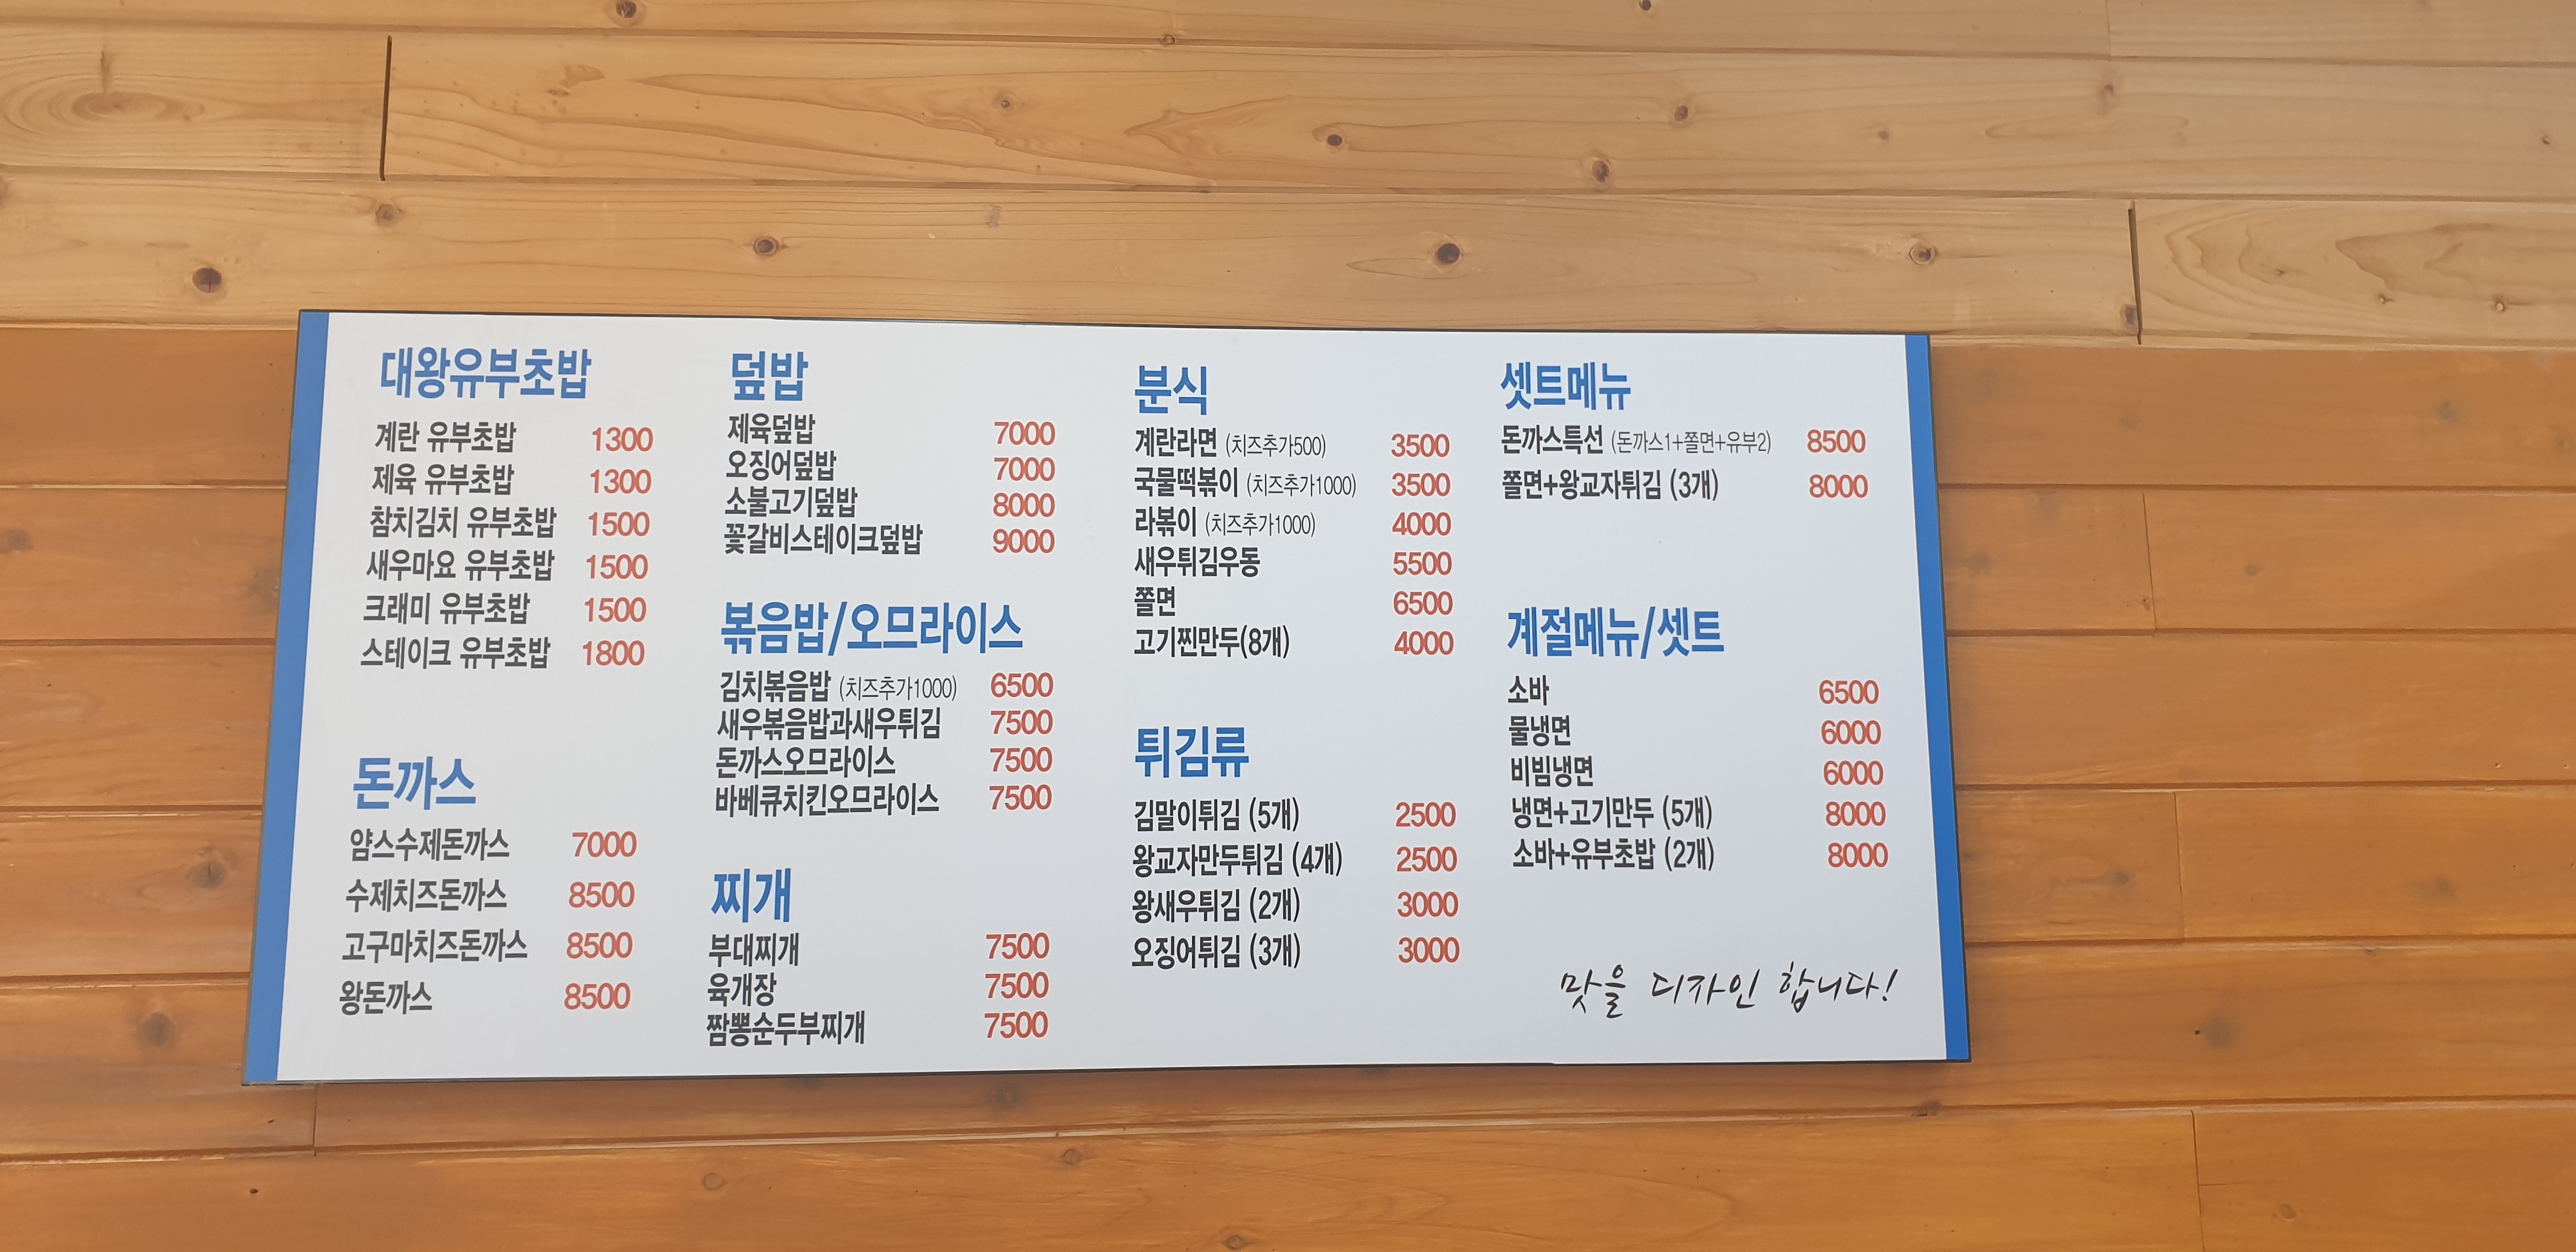 대왕유부초밥
계란 유부초밥 1300
제육 유부초밥 1300
참치김치 유부초밥 1500
새우마요 유부초밥 1500
크래미 유부초밥 1500
스테이크 유부초밥 1800
돈까스
얌스수제돈까스 7000
수제치즈돈까스 8500
고구마치즈돈까스 8500
왕돈까스 8500
덮밥
제육덮밥 7000
오징어덮밥 7000
소불고기덮밥 8000
꽃갈비스테이크덮밥 9000
볶음밥/오므라이스
김치볶음밥 (치즈추가1000) 6500
새우볶음밥과새우튀김 7500
돈까스오므라이스 7500
바베큐치킨오므라이스 7500
찌개
부대찌개 7500
육개장 7500
짬뽕순두부찌개 7500
분식
계란라면 (치즈추가500) 3500
국물떡볶이 (치즈추가1000) 3500
라볶이 (치즈추가1000) 4000
새우튀김우동 5500
쫄면 6500
고기찐만두(8개) 4000
튀김류
김말이튀김 (5개) 2500
왕교자만두튀김 (4개) 2500
왕새우튀김 (2개) 3000
오징어튀김 (3개) 3000
셋트메뉴
돈까스특선 (돈까스1+쫄면+유부2) 8500
쫄면+왕교자튀김 (3개) 8000
계절메뉴/셋트
소바 6500
물냉면 6000
비빔냉면 6000
냉면+고기만두 (5개) 8000
소바+유부초밥 (2개) 8000
맛을 디자인 합니다!